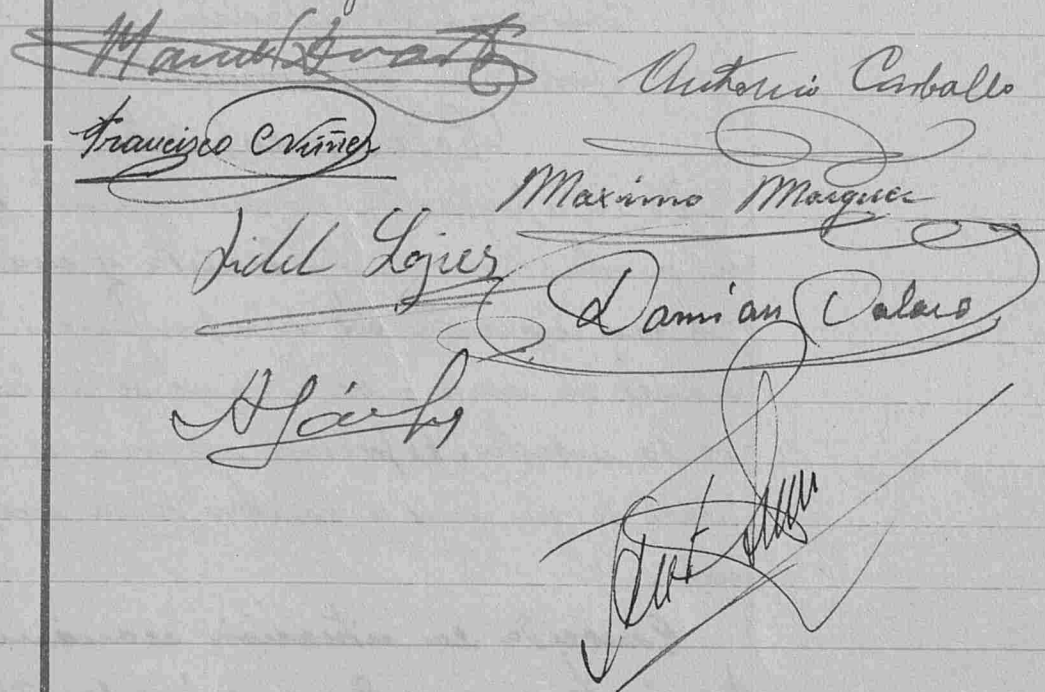 Manuel Duarte
Antonio Carballo
Francisco Núñez
Maximo Marquez
Fidel López
Damian Valero
A Sánchez